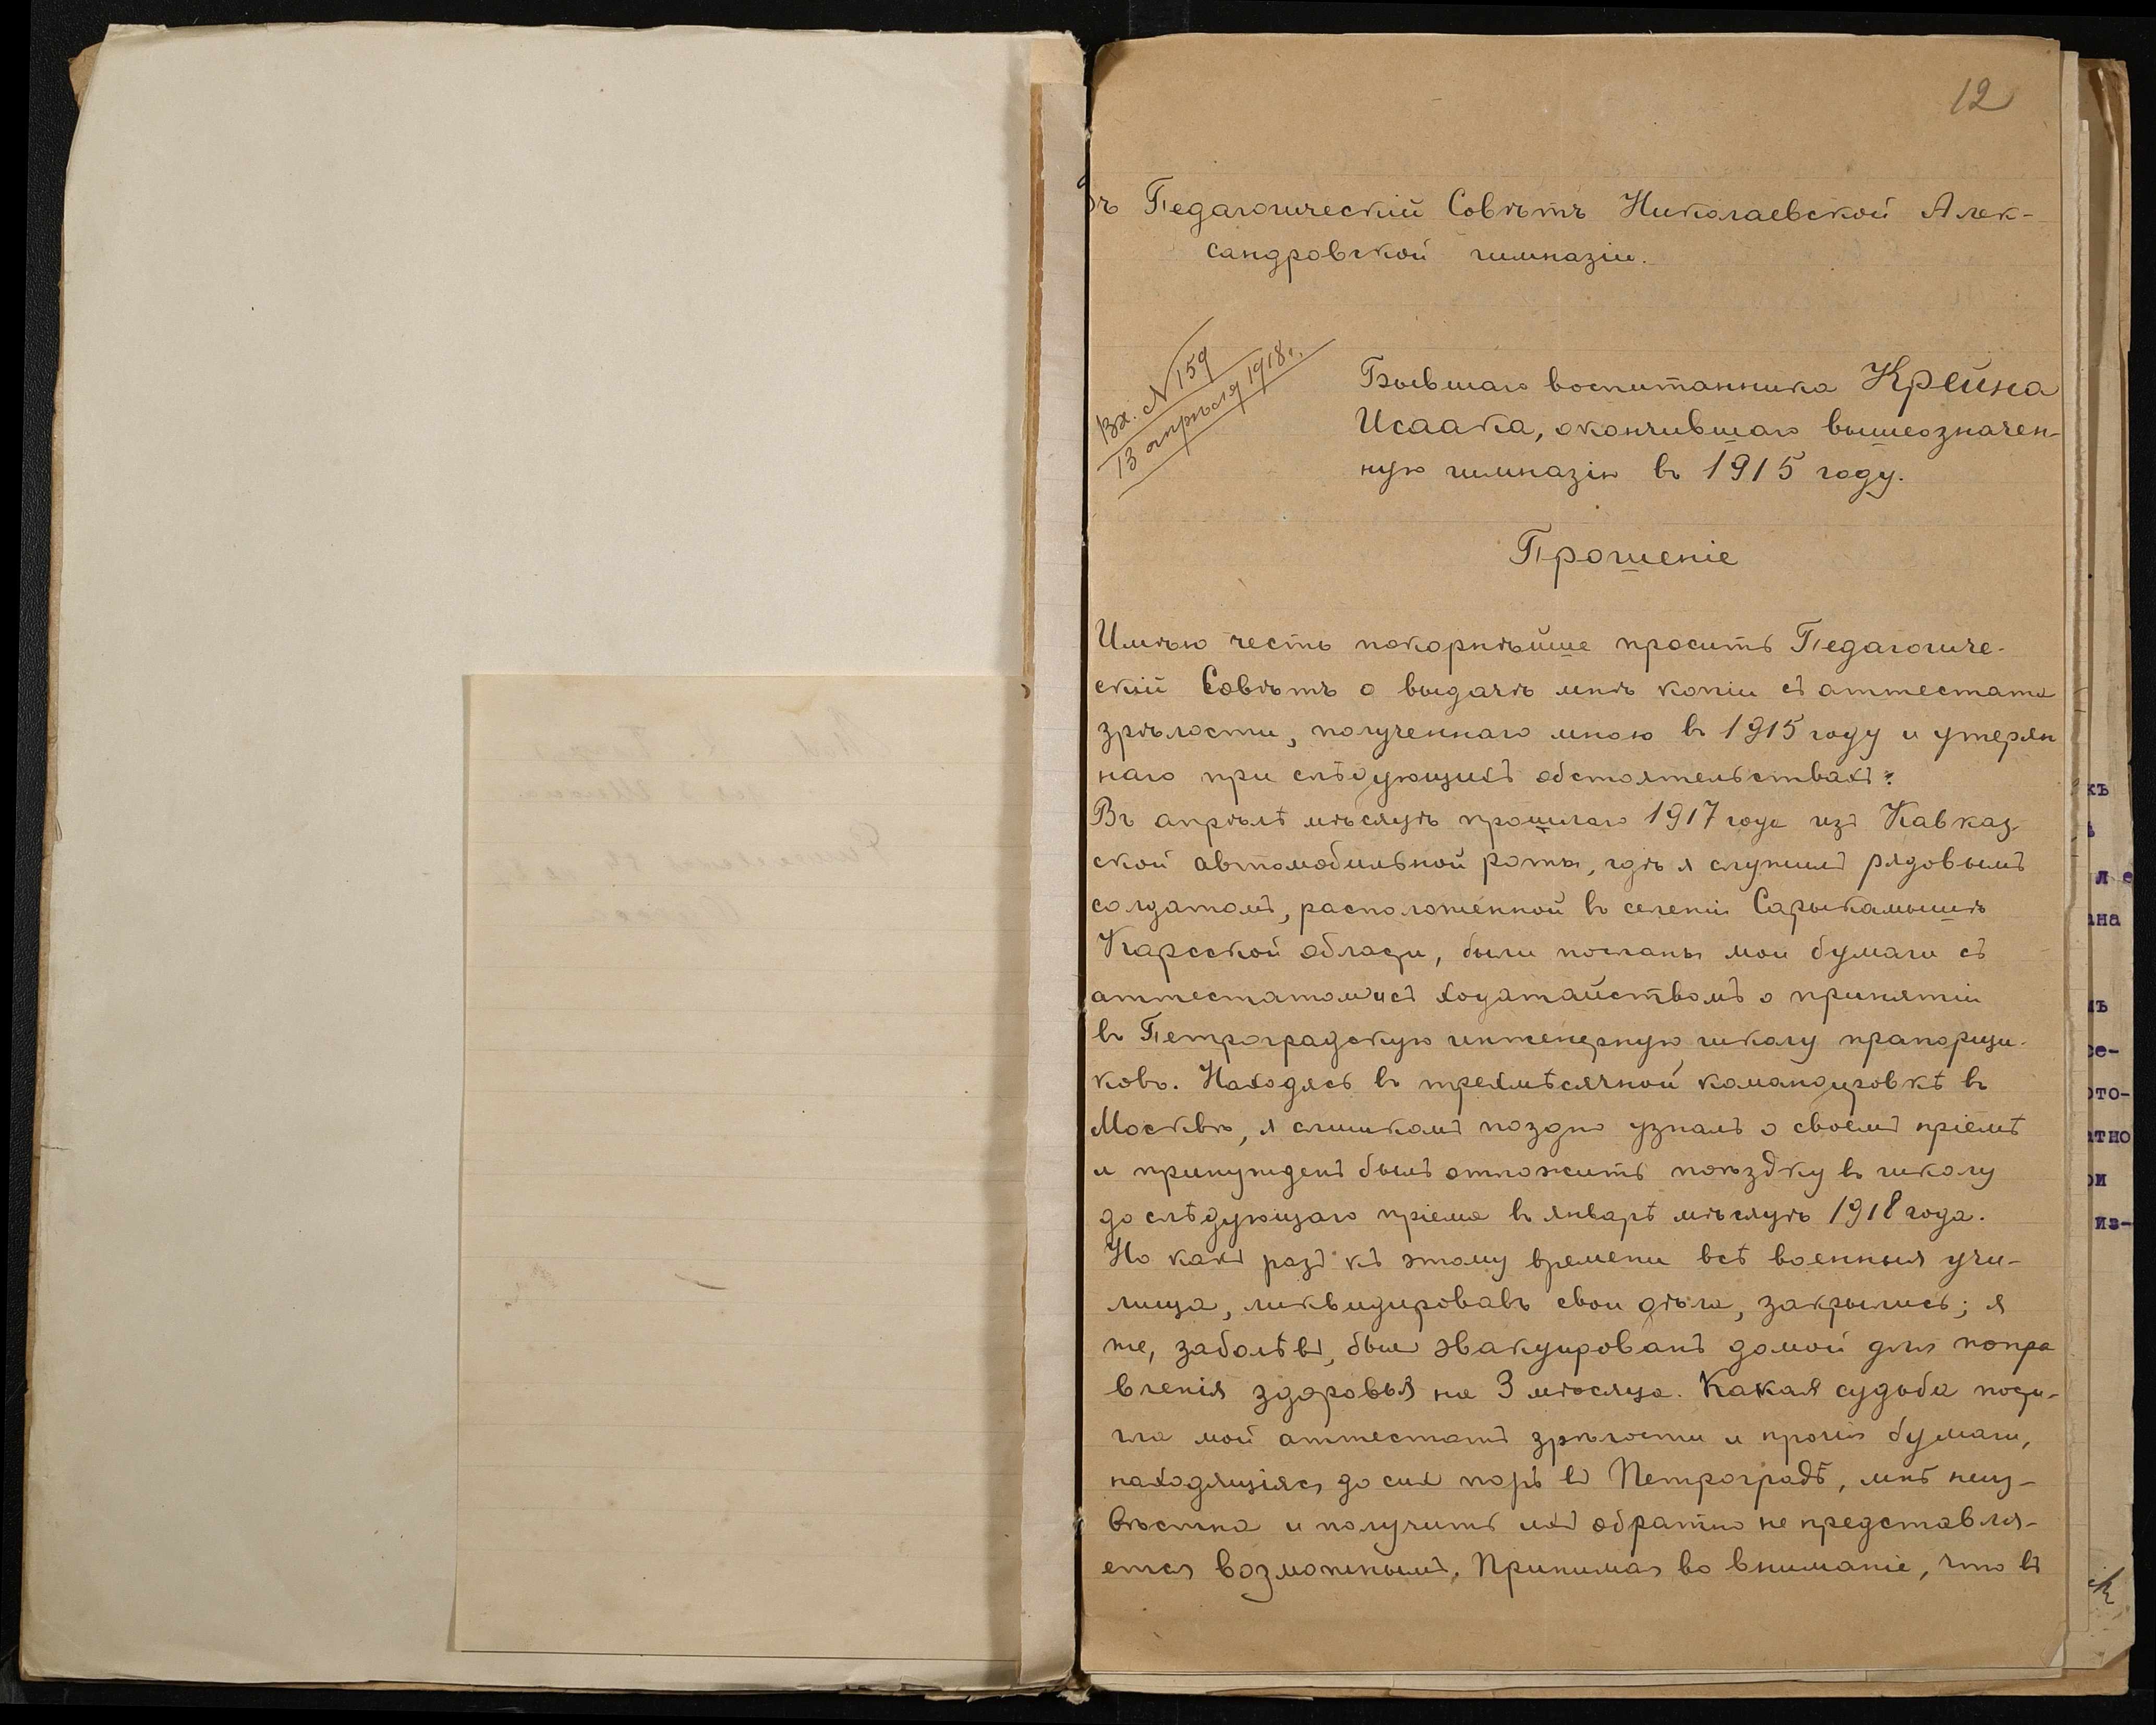 12
Въ Педагогическій Совѣтъ Николаевской Алек-
сандровской гимназіи.
Вх. № 159
13 апрѣля 1918 г.
Бывшаго воспитанника Крейна
Исаака, окончившаго вышеозначен-
ную гимназію въ 1915 году.
Прошеніе
Имѣю честь покорнѣйше просить Педагогиче-
скій Совѣтъ о выдачѣ мнѣ копіи съ аттестата
зрѣлости, полученнаго мною въ 1915 году и утерян
наго при слѣдующихъ обстоятельствахъ:
Въ апрѣлѣ мѣсяцѣ прошлаго 1917 года изъ Кавказ-
ской автомобильной роты, гдѣ я служилъ рядовымъ
солдатомъ, расположенной въ селеніи Сарыкамышѣ
Карсской области, были посланы мои бумаги съ
аттестатомъ и съ ходатайствомъ о принятіи
въ Петроградскую инженерную школу прапорщи-
ковъ. Находясь въ трехмѣсячной командировкѣ въ
Москвѣ, я слишкомъ поздно узналъ о своемъ пріемѣ
и принужденъ былъ отложить поѣздку въ школу
до слѣдующаго пріема въ январѣ мѣсяцѣ 1918 года.
Но какъ разъ къ этому времени всѣ военныя учи-
лища, ликвидировавъ свои дѣла, закрылись; я
же, заболѣвъ, былъ эвакуированъ домой для попра
вленія здоровья на 3 мѣсяца. Какая судьба пости-
гла мой аттестатъ зрѣлости и прочія бумаги,
находящіяся до сихъ поръ въ Петроградѣ, мнѣ неиз-
вѣстно и получить ихъ обратно не представля-
ется возможнымъ. Принимая во вниманіе, что въ
къ
ле
ана
се-
ото-
атно
ри
из-